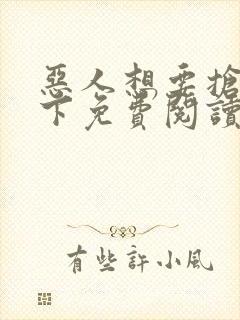 惡人想要搶
下免費閱讀
有些許小風